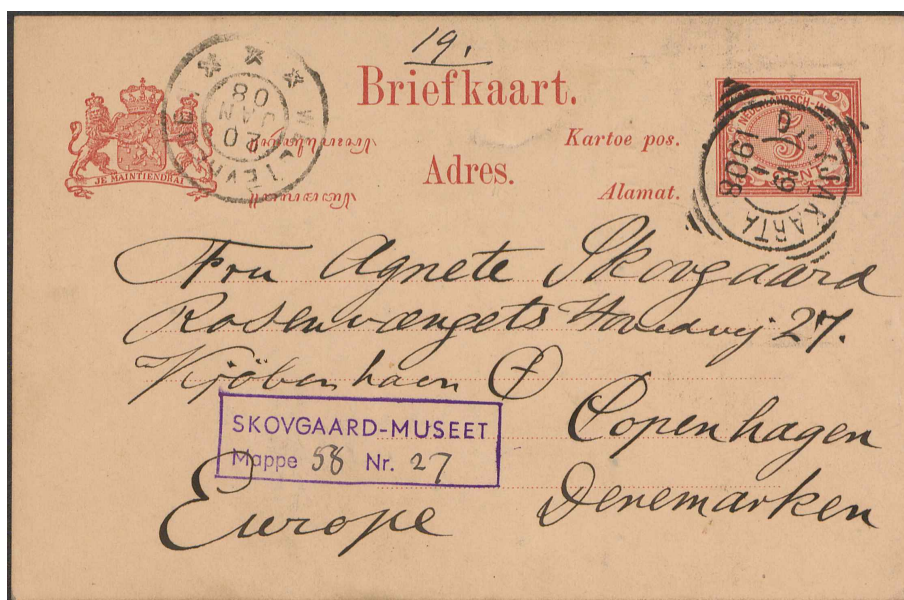 19.
Briefkaart.
Kartoe pos.
Adres.
Alamat.
JE MAINTIENDRAI
WELTEVREDEN
20
JAN
08
NEDERLANDSCH-IN
5
CENT
DJOKJAKARTA
19
1
1908
Fru Agnete Skovgaard
Rosenvængets Hovedvej 27.
Kjöbenhaen Ø
Copenhagen
Denemarken
Europe
SKOVGAARD-MUSEET
Mappe 58 Nr. 27